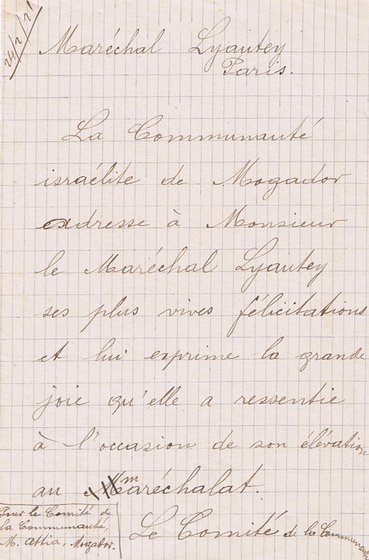 24/2/21
Maréchal Lyautey
Paris.
La Communauté
israélite de Mogador
adresse à Monsieur
le Maréchal Lyautey
ses plus vives félicitations
et lui exprime la grande
joie qu'elle a ressentie
à l'occasion de son élévation
au Maréchalat.
Le Comité de la Communauté
Pour le Comité de
la Communauté,
M. Attia, Mogador.